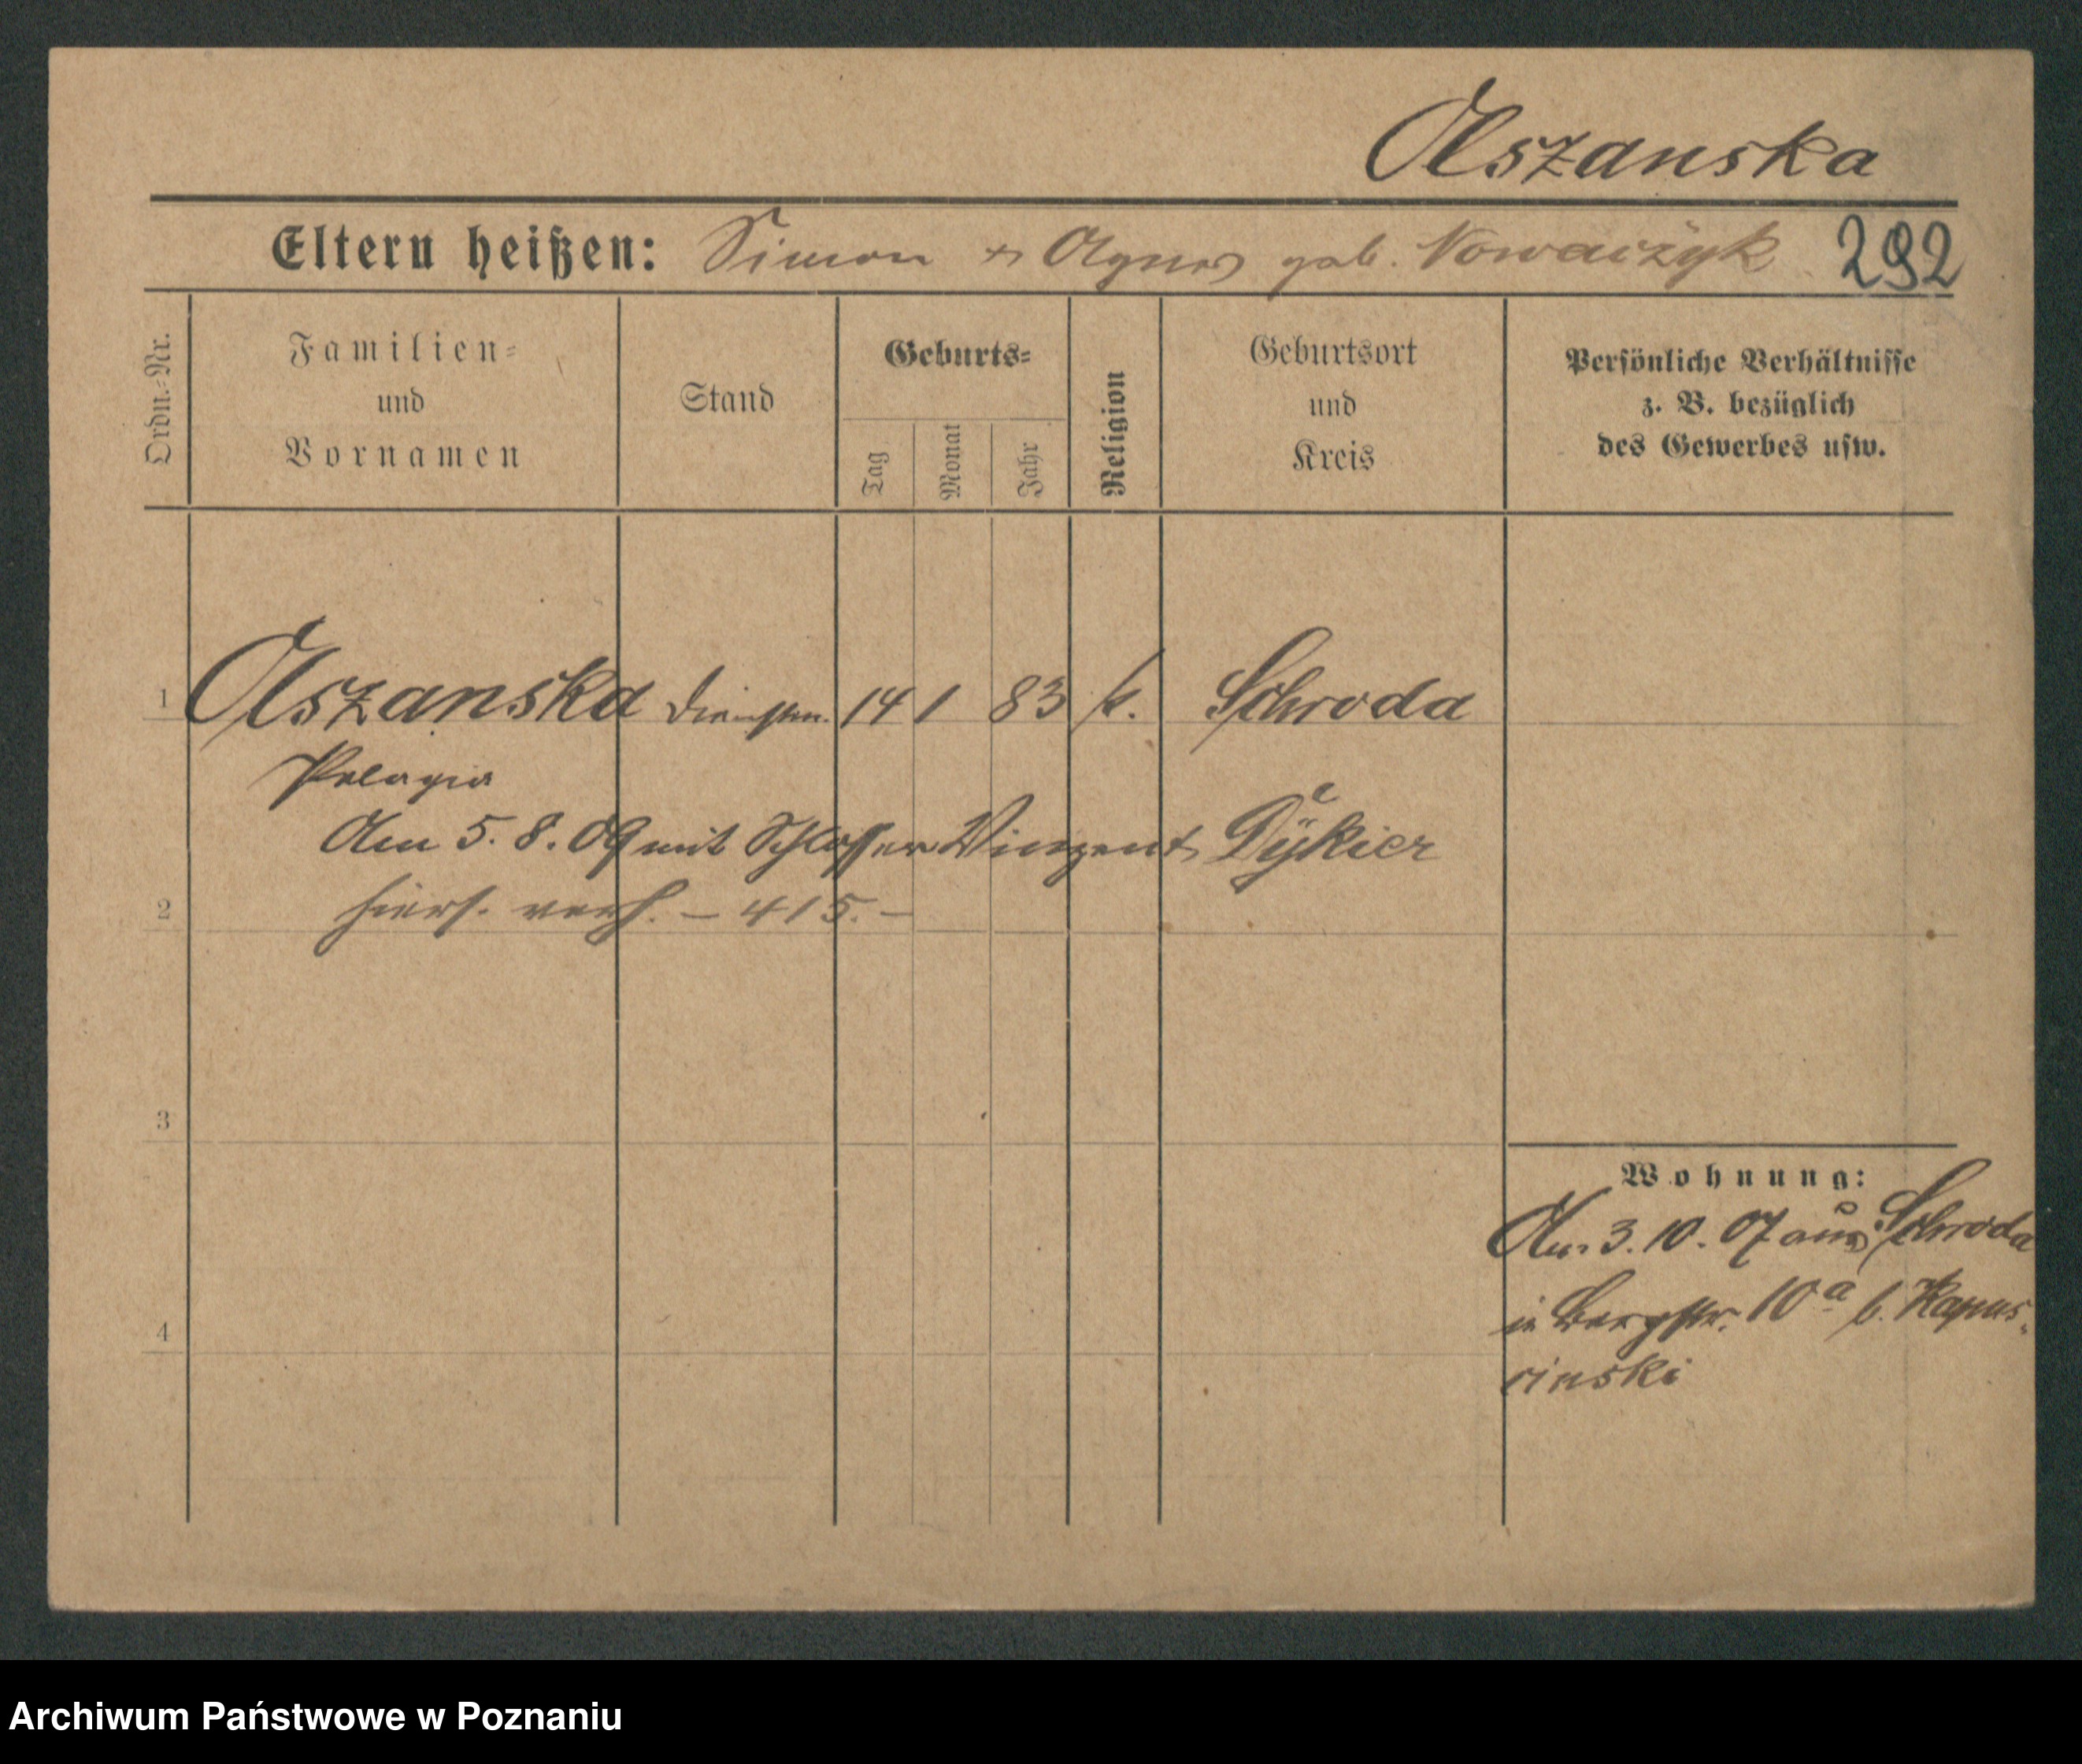 Olszanska
Eltern heißen: Simon + Agnes geb. Nowaczyk 292
Ordn.-Nr.
Familien-
und
Vornamen
Stand
Geburts-
Tag
Monat
Jahr
Religion
Geburtsort
und
Kreis
Persönliche Verhältnisse
z. B. bezüglich
des Gewerbes usw.
1 Olszanska Dienstm. 14 1 83 k. Schroda
Pelagia
Am 5. 8. 09 mit Schlosser Vinzent Dykier
2 hiers. verh. – 415. –
3
Wohnung:
Am 3. 10. 07 aus Schroda
in Bergstr. 10a b. Kapus-
4
cinski
Archiwum Państwowe w Poznaniu